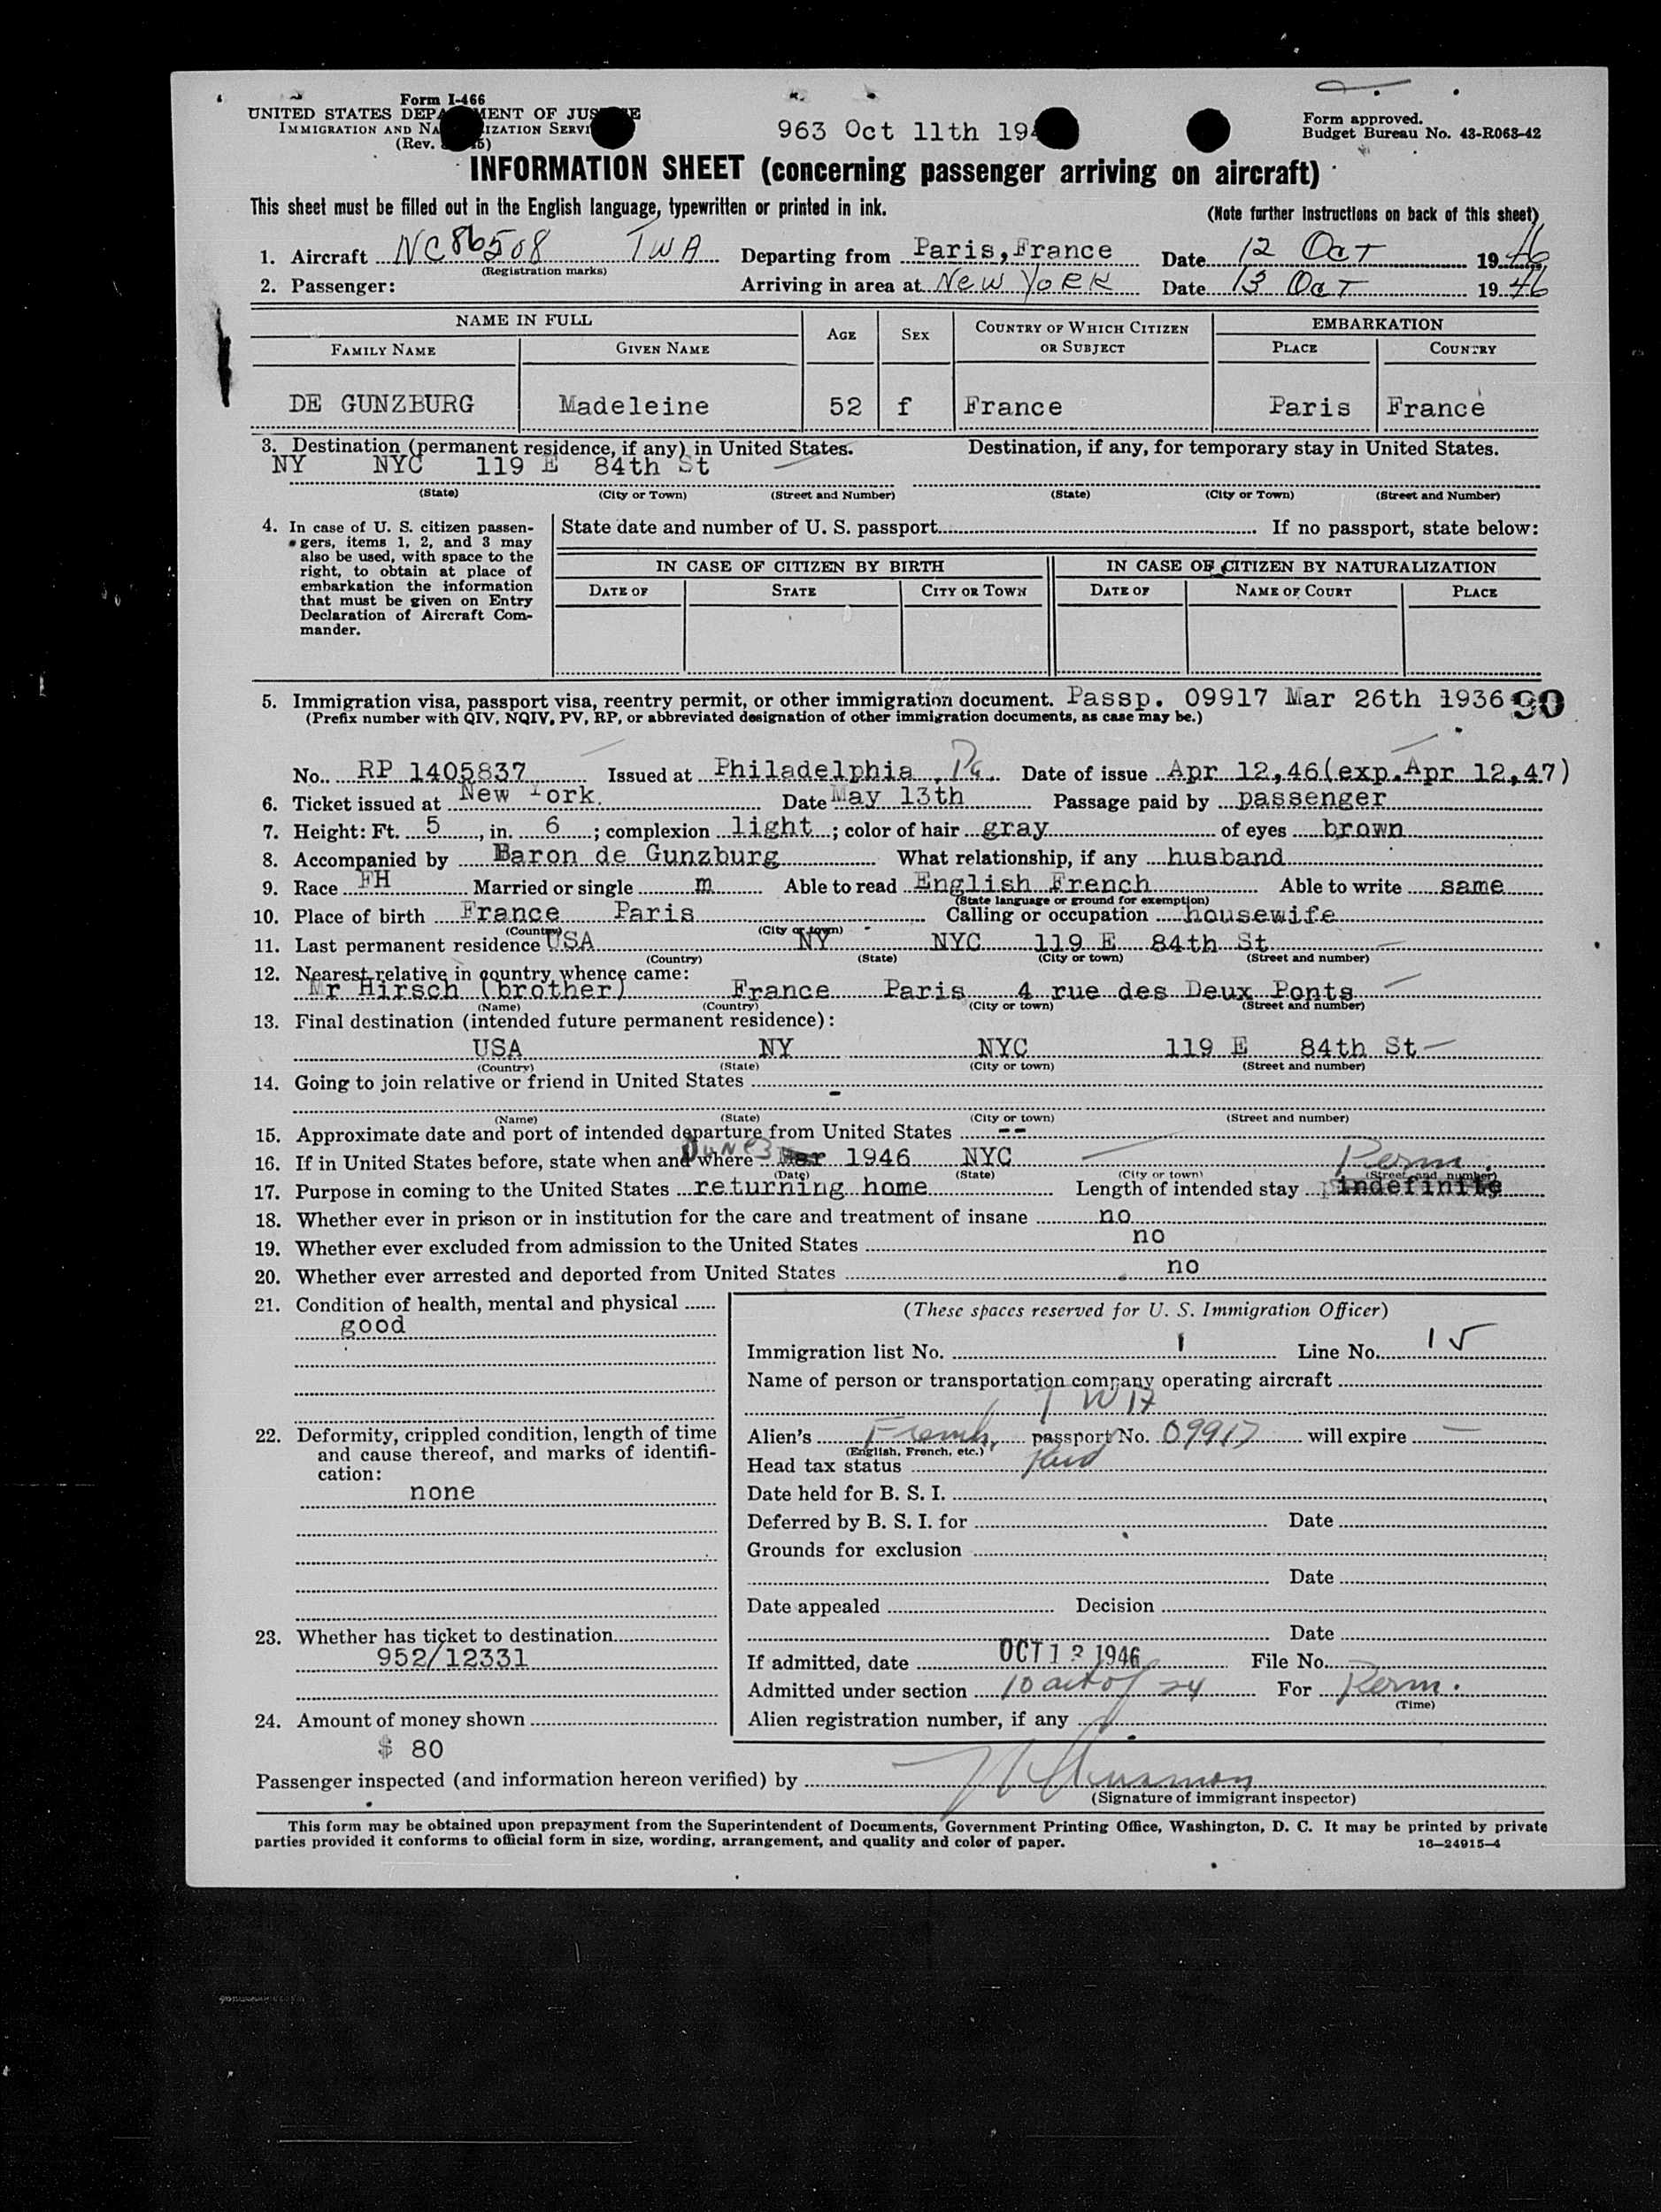 Form I-466
UNITED STATES DEPA MENT OF JUS E
IMMIGRATION AND NA IZATION SERVI
(Rev. 5)
963 Oct 11th 19
Form approved.
Budget Bureau No. 43-R063-42
INFORMATION SHEET (concerning passenger arriving on aircraft)
This sheet must be filled out in the English language, typewritten or printed in ink.
(Note further instructions on back of this sheet)
1. Aircraft NC86508 TWA Departing from Paris, France Date 12 Oct 1946
(Registration marks)
2. Passenger: Arriving in area at New York Date 13 Oct 1946
NAME IN FULL AGE SEX COUNTRY OF WHICH CITIZEN OR SUBJECT EMBARKATION
FAMILY NAME GIVEN NAME PLACE COUNTRY
DE GUNZBURG Madeleine 52 f France Paris France
3. Destination (permanent residence, if any) in United States. Destination, if any, for temporary stay in United States.
NY NYC 119 E 84th St
(State) (City or Town) (Street and Number) (State) (City or Town) (Street and Number)
4. In case of U. S. citizen passen-
gers, items 1, 2, and 3 may
also be used, with space to the
right, to obtain at place of
embarkation the information
that must be given on Entry
Declaration of Aircraft Com-
mander.
State date and number of U. S. passport If no passport, state below:
IN CASE OF CITIZEN BY BIRTH IN CASE OF CITIZEN BY NATURALIZATION
DATE OF STATE CITY OR TOWN DATE OF NAME OF COURT PLACE
5. Immigration visa, passport visa, reentry permit, or other immigration document. Passp. 09917 Mar 26th 1936 90
(Prefix number with QIV, NQIV, PV, RP, or abbreviated designation of other immigration documents, as case may be.)
No. RP 1405837 Issued at Philadelphia, Pa. Date of issue Apr 12,46(exp.Apr 12,47)
6. Ticket issued at New York. Date May 13th Passage paid by passenger
7. Height: Ft. 5, in. 6; complexion light; color of hair gray of eyes brown
8. Accompanied by Baron de Gunzburg What relationship, if any husband
9. Race FH Married or single m Able to read English French Able to write same
(State language or ground for exemption)
10. Place of birth France Paris Calling or occupation housewife
(Country) (City or town)
11. Last permanent residence USA NY NYC 119 E 84th St
(Country) (State) (City or town) (Street and number)
12. Nearest relative in country whence came:
Mr Hirsch (brother) France Paris 4 rue des Deux Ponts
(Name) (Country) (City or town) (Street and number)
13. Final destination (intended future permanent residence):
USA NY NYC 119 E 84th St
(Country) (State) (City or town) (Street and number)
14. Going to join relative or friend in United States -
(Name) (State) (City or town) (Street and number)
15. Approximate date and port of intended departure from United States --
16. If in United States before, state when and where June 3 Mar 1946 NYC
(Date) (State) (City or town) (Street and number)
Perm.
17. Purpose in coming to the United States returning home Length of intended stay indefinite
18. Whether ever in prison or in institution for the care and treatment of insane no
19. Whether ever excluded from admission to the United States no
20. Whether ever arrested and deported from United States no
21. Condition of health, mental and physical
good
22. Deformity, crippled condition, length of time
and cause thereof, and marks of identifi-
cation:
none
23. Whether has ticket to destination
952/12331
24. Amount of money shown
$ 80
(These spaces reserved for U. S. Immigration Officer)
Immigration list No. 1 Line No. 15
Name of person or transportation company operating aircraft
TWA
Alien's French, passport No. 09917 will expire —
(English, French, etc.)
Head tax status
Date held for B. S. I.
Deferred by B. S. I. for Date
Grounds for exclusion
Date
Date appealed Decision
Date
If admitted, date OCT 13 1946 File No.
Admitted under section 10 act of 24 For Perm.
(Time)
Alien registration number, if any
Passenger inspected (and information hereon verified) by
(Signature of immigrant inspector)
This form may be obtained upon prepayment from the Superintendent of Documents, Government Printing Office, Washington, D. C. It may be printed by private
parties provided it conforms to official form in size, wording, arrangement, and quality and color of paper.
16—24915-4